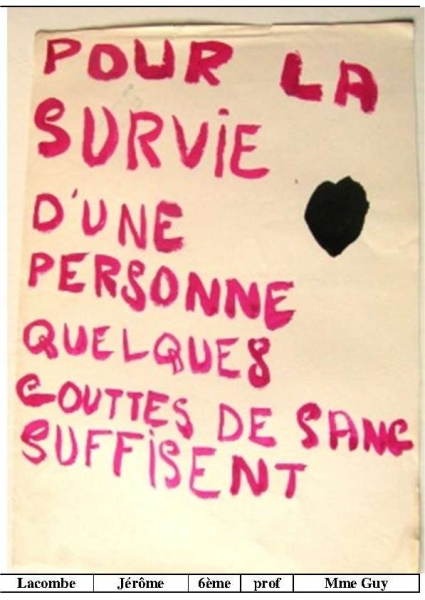 POUR LA
SURViE
D'UNE
PERSONNE
QUELQUES
GOUTTES DE SANG
SUFFiSENT
Lacombe Jérôme 6ème prof Mme Guy